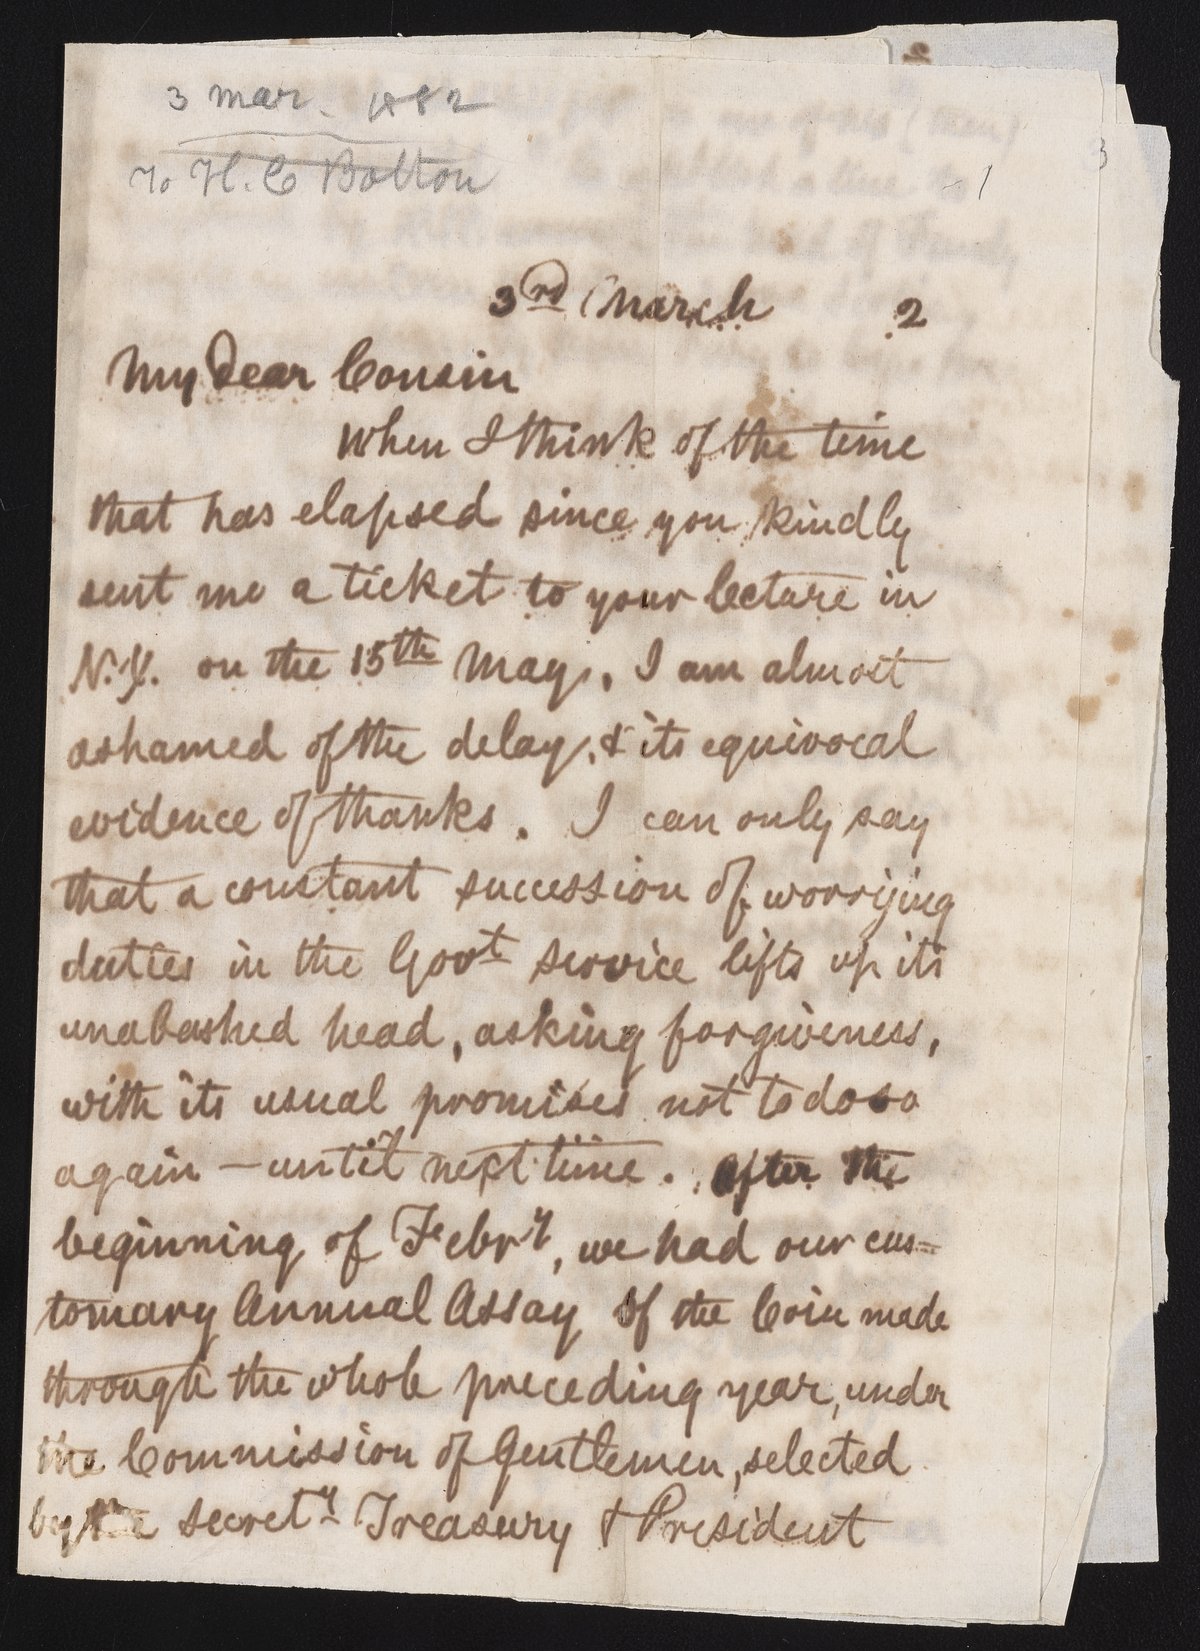 3 Mar. 1882
To H. C Bolton
1
3
3rd March 2
My Dear Cousin
When I think of the time
that has elapsed since you kindly
sent me a ticket to your lecture in
N.Y. on the 15th May, I am almost
ashamed of the delay, & its equivocal
evidence of thanks. I can only say
that a constant succession of worrying
duties in the Govt service lifts up its
unabashed head, asking forgiveness,
with its usual promises not to do so
again — until next time. After the
beginning of Febry, we had our cus=
tomary Annual Assay of the Coin made
through the whole preceding year, under
the Commission of Gentlemen, selected
by the Secrety Treasury & President